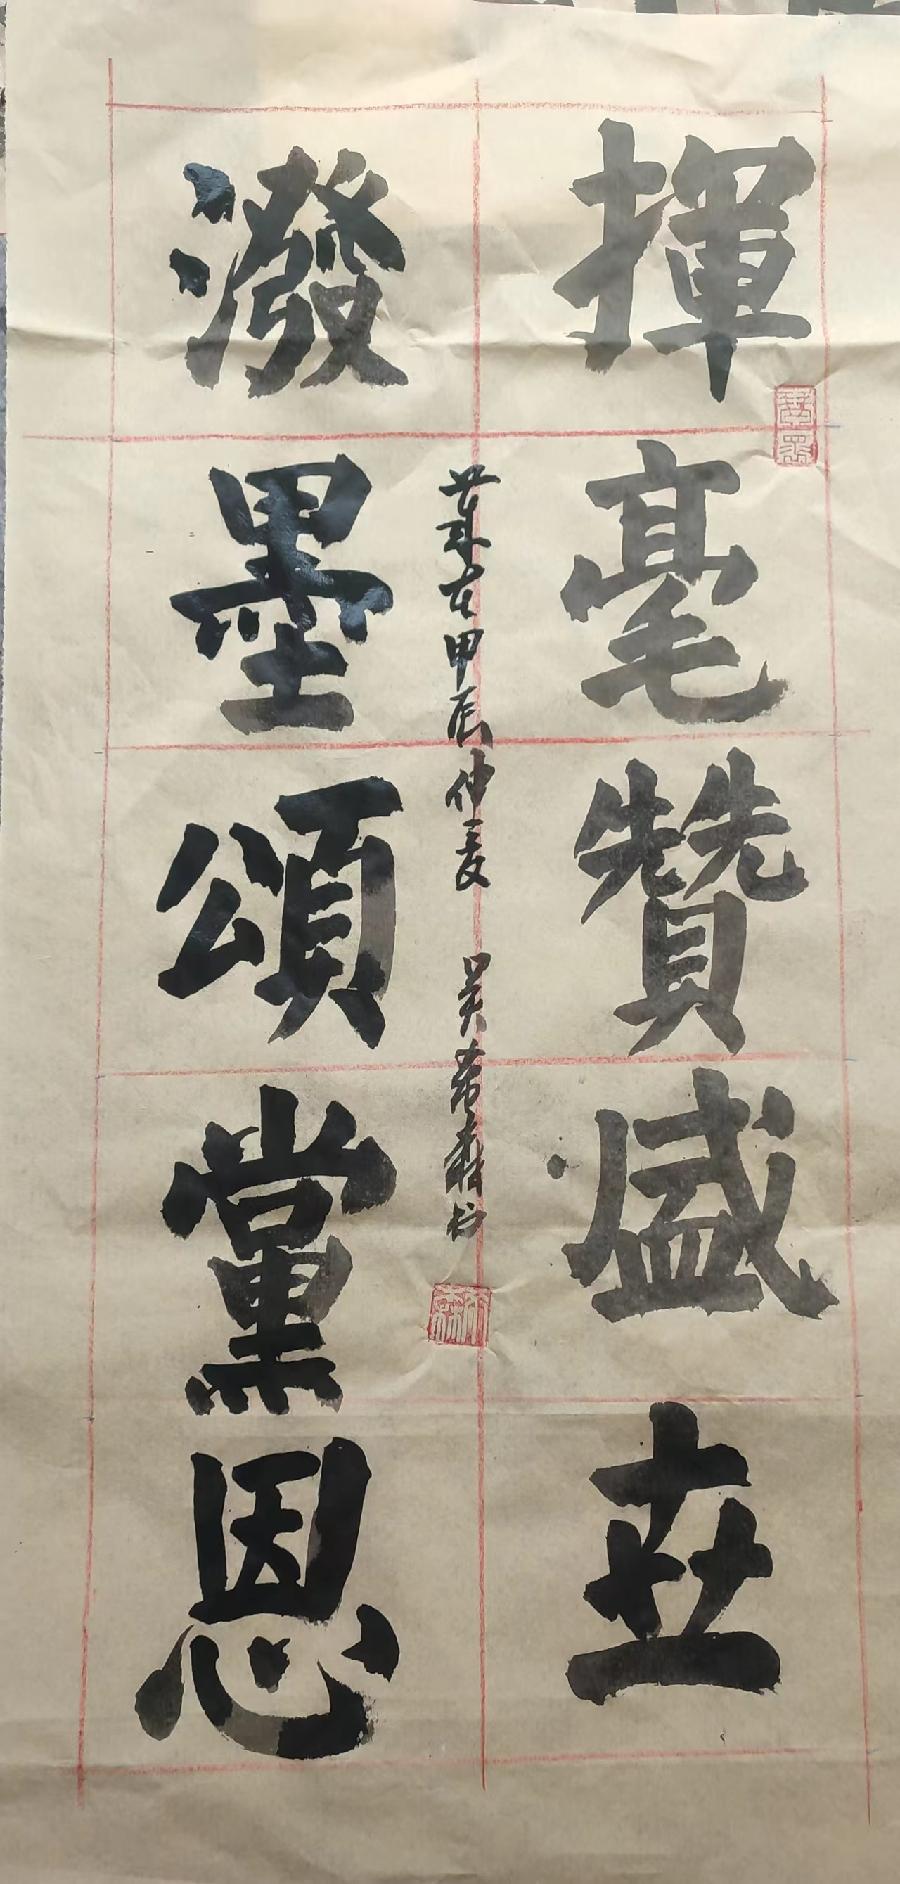 揮毫贊盛世
潑墨頌黨恩
歲在甲辰仲夏 吴